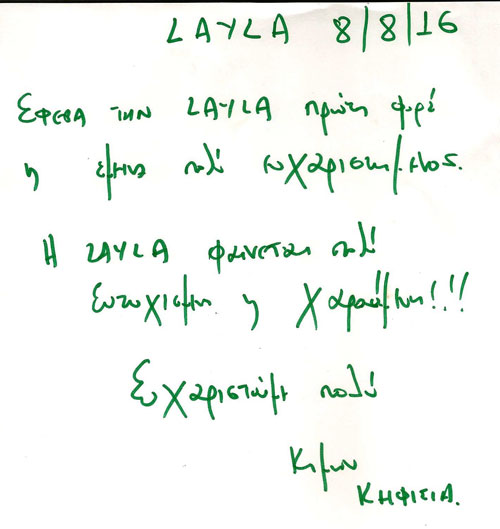 LAYLA 8/8/16
Εφερα την LAYLA πρώτη φορά
η έμεινα πολύ ευχαριστημένος.
Η LAYLA φαίνεται πολύ
Ευτυχισμένη η Χαρούμενη!!!
Ευχαριστούμε πολύ
Κίμων
ΚΗΦΙΣΙΑ.